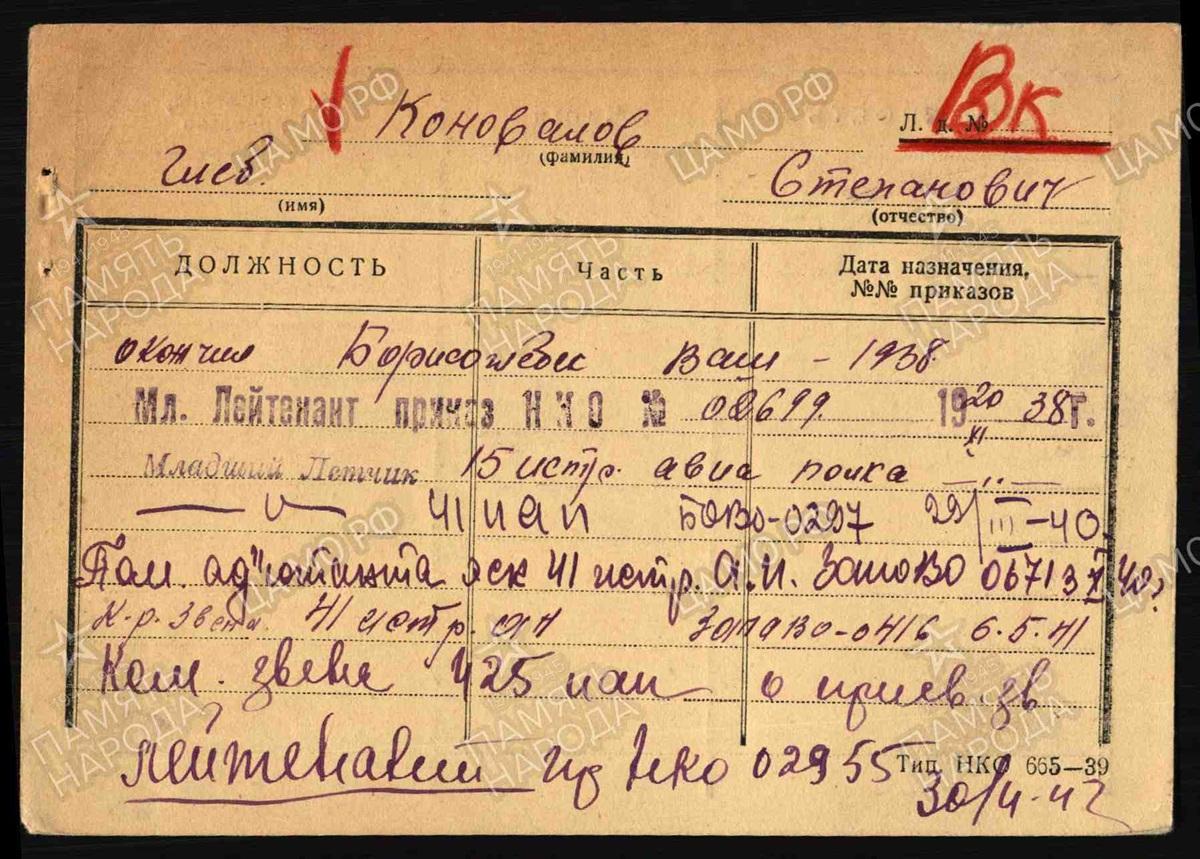 Вк
Коновалов
Л. д. №
(фамилия)
Глеб.
Степанович
(имя)
(отчество)
ДОЛЖНОСТЬ Часть Дата назначения, №№ приказов
окончил Борисоглебск ВАШ - 1938
Мл. Лейтенант приказ НКО № 02699 1938 г. 20 XI
Младший Летчик 15 истр. авиа полка — " —
— " — 41 иап БОВО-0297 22/III-40
Пом. ад"ютанта эск 41 истр. А.П. ЗапОВО 0671 40г
К-р. Звена 41 истр. ап ЗапОВО-0416 6.5.41
Ком. звена 425 иап о присв. зв
Лейтенант пр НКО 02955
Тип. НКО 665—39
30/ 42
ЦАМО.РФ
ПАМЯТЬ НАРОДА
1941-1945